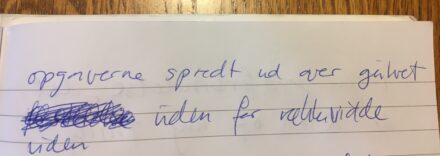 opgaverne spredt ud over gulvet
uden for rækkevidde
uden